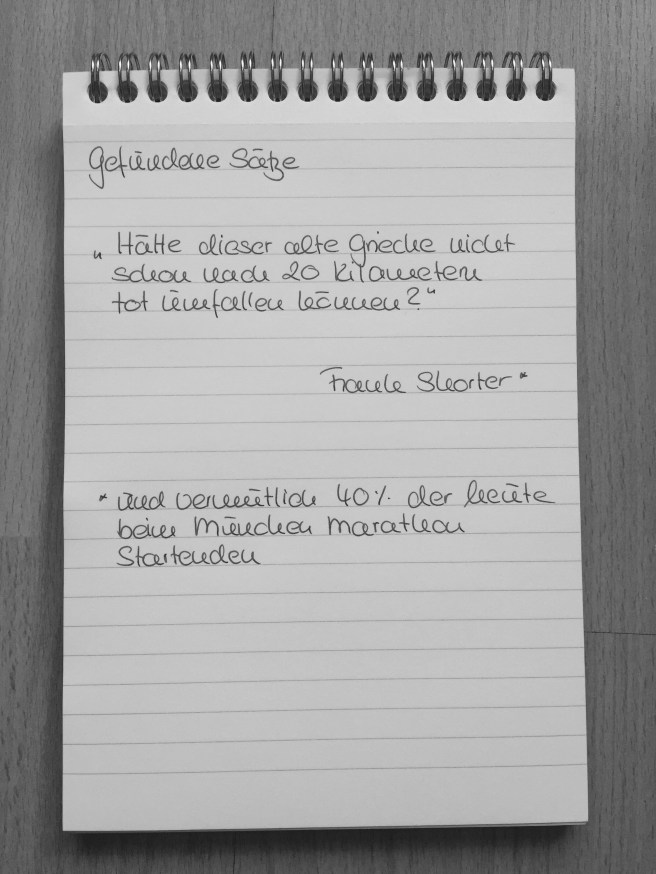 Gefundene Sätze
„Hätte dieser alte Grieche nicht
schon nach 20 Kilometern
tot umfallen können?"
Frank Shorter*
* und vermutlich 40% der heute
beim München Marathon
Startenden